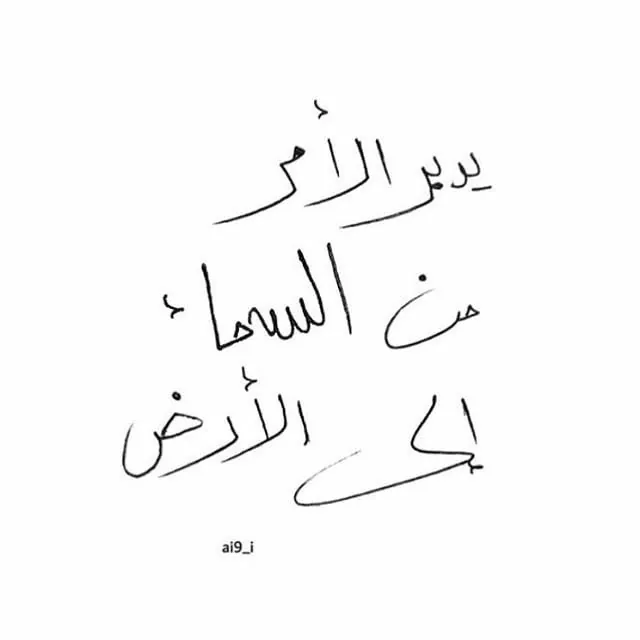 يدبر الأمر
من السماء
إلى الأرض
ai9_i